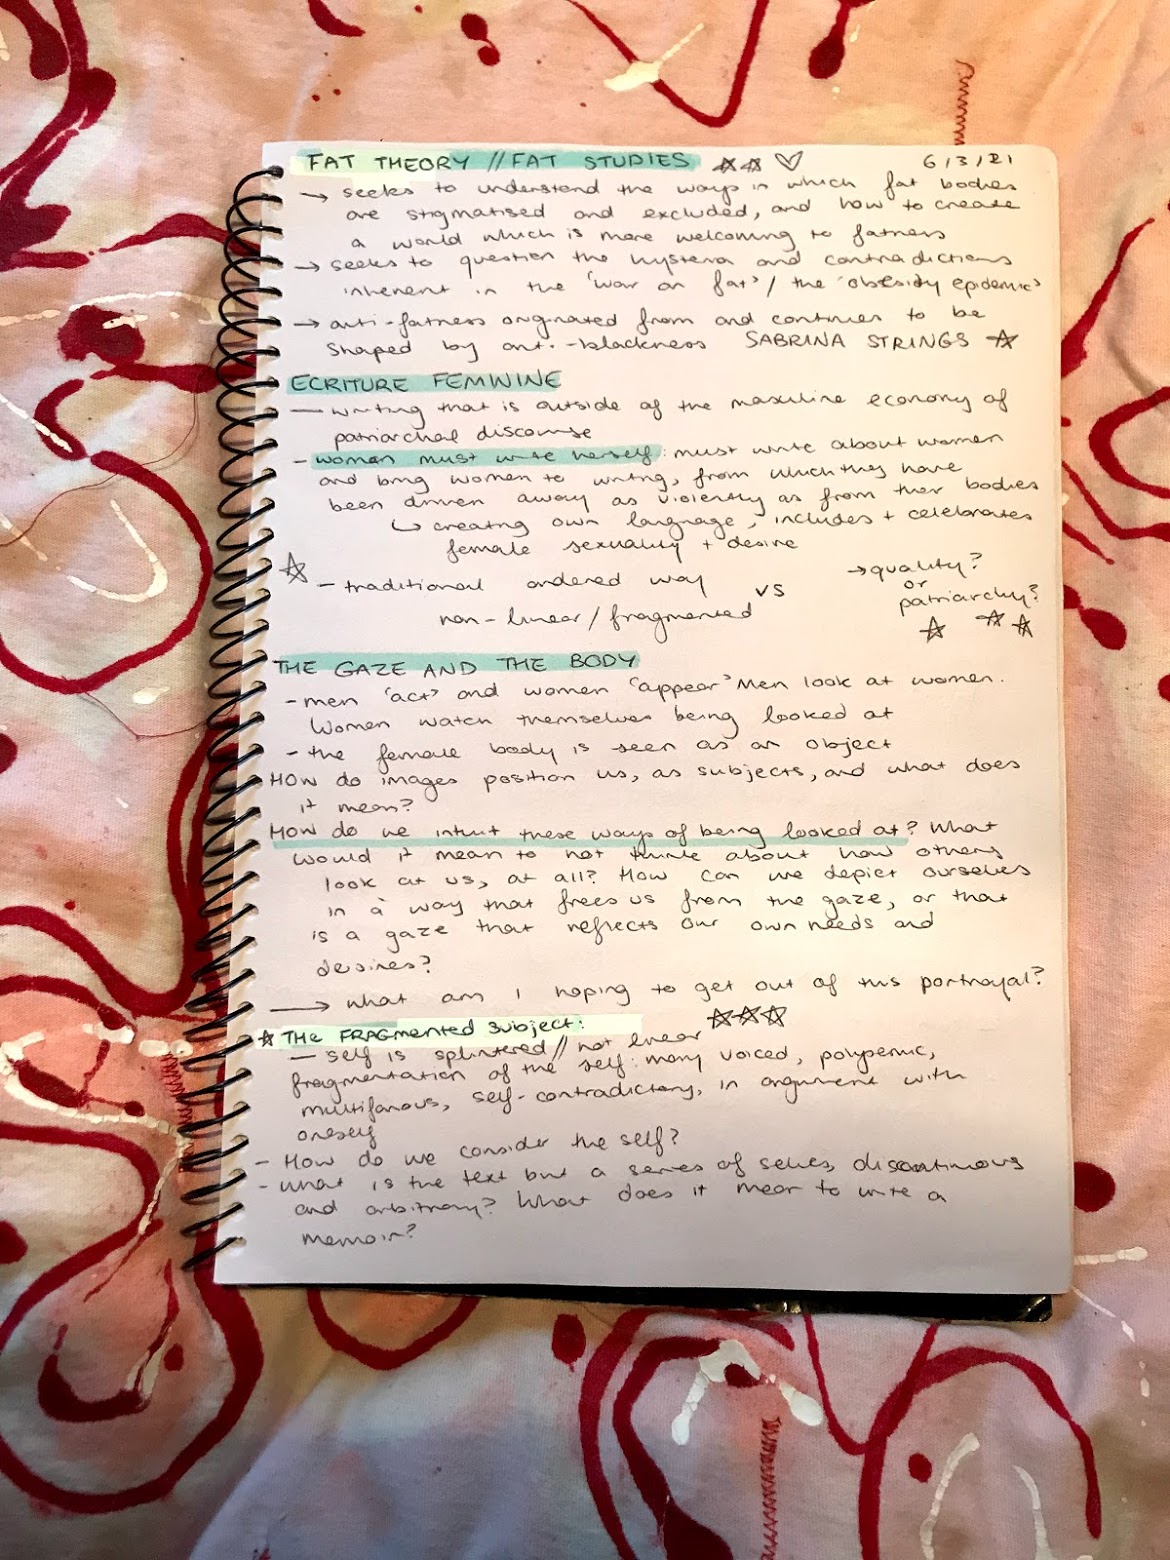 FAT THEORY // FAT STUDIES ☆☆ ♡ 6/3/21
→ seeks to understand the ways in which fat bodies
are stigmatised and excluded, and how to create
a world which is more welcoming to fatness
→ seeks to question the hysteria and contradictions
inherent in the 'war on fat' / the 'obesity epidemic'
→ anti-fatness originated from and continues to be
shaped by anti-blackness SABRINA STRINGS ☆
ECRITURE FEMININE
— writing that is outside of the masculine economy of
patriarchal discourse
- woman must write herself: must write about women
and bring women to writing, from which they have
been driven away as violently as from their bodies
↳ creating own language, includes + celebrates
female sexuality + desire
☆ - traditional ordered way vs
non-linear / fragmented
→ quality?
or
patriarchy?
☆ ☆ ☆
THE GAZE AND THE BODY
- men 'act' and women 'appear' Men look at women.
Women watch themselves being looked at
- the female body is seen as an object
How do images position us, as subjects, and what does
it mean?
How do we intuit these ways of being looked at? What
would it mean to not think about how others
look at us, at all? How can we depict ourselves
in a way that frees us from the gaze, or that
is a gaze that reflects our own needs and
desires?
→ what am I hoping to get out of this portrayal?
☆ THE FRAGMENTED SUBJECT: ☆☆☆
— self is splintered // not linear
fragmentation of the self: many voiced, polysemic,
multifarous, self-contradictory, in argument with
oneself
- How do we consider the self?
- what is the text but a series of selves, discontinuous
and arbitrary? What does it mean to write a
memoir?